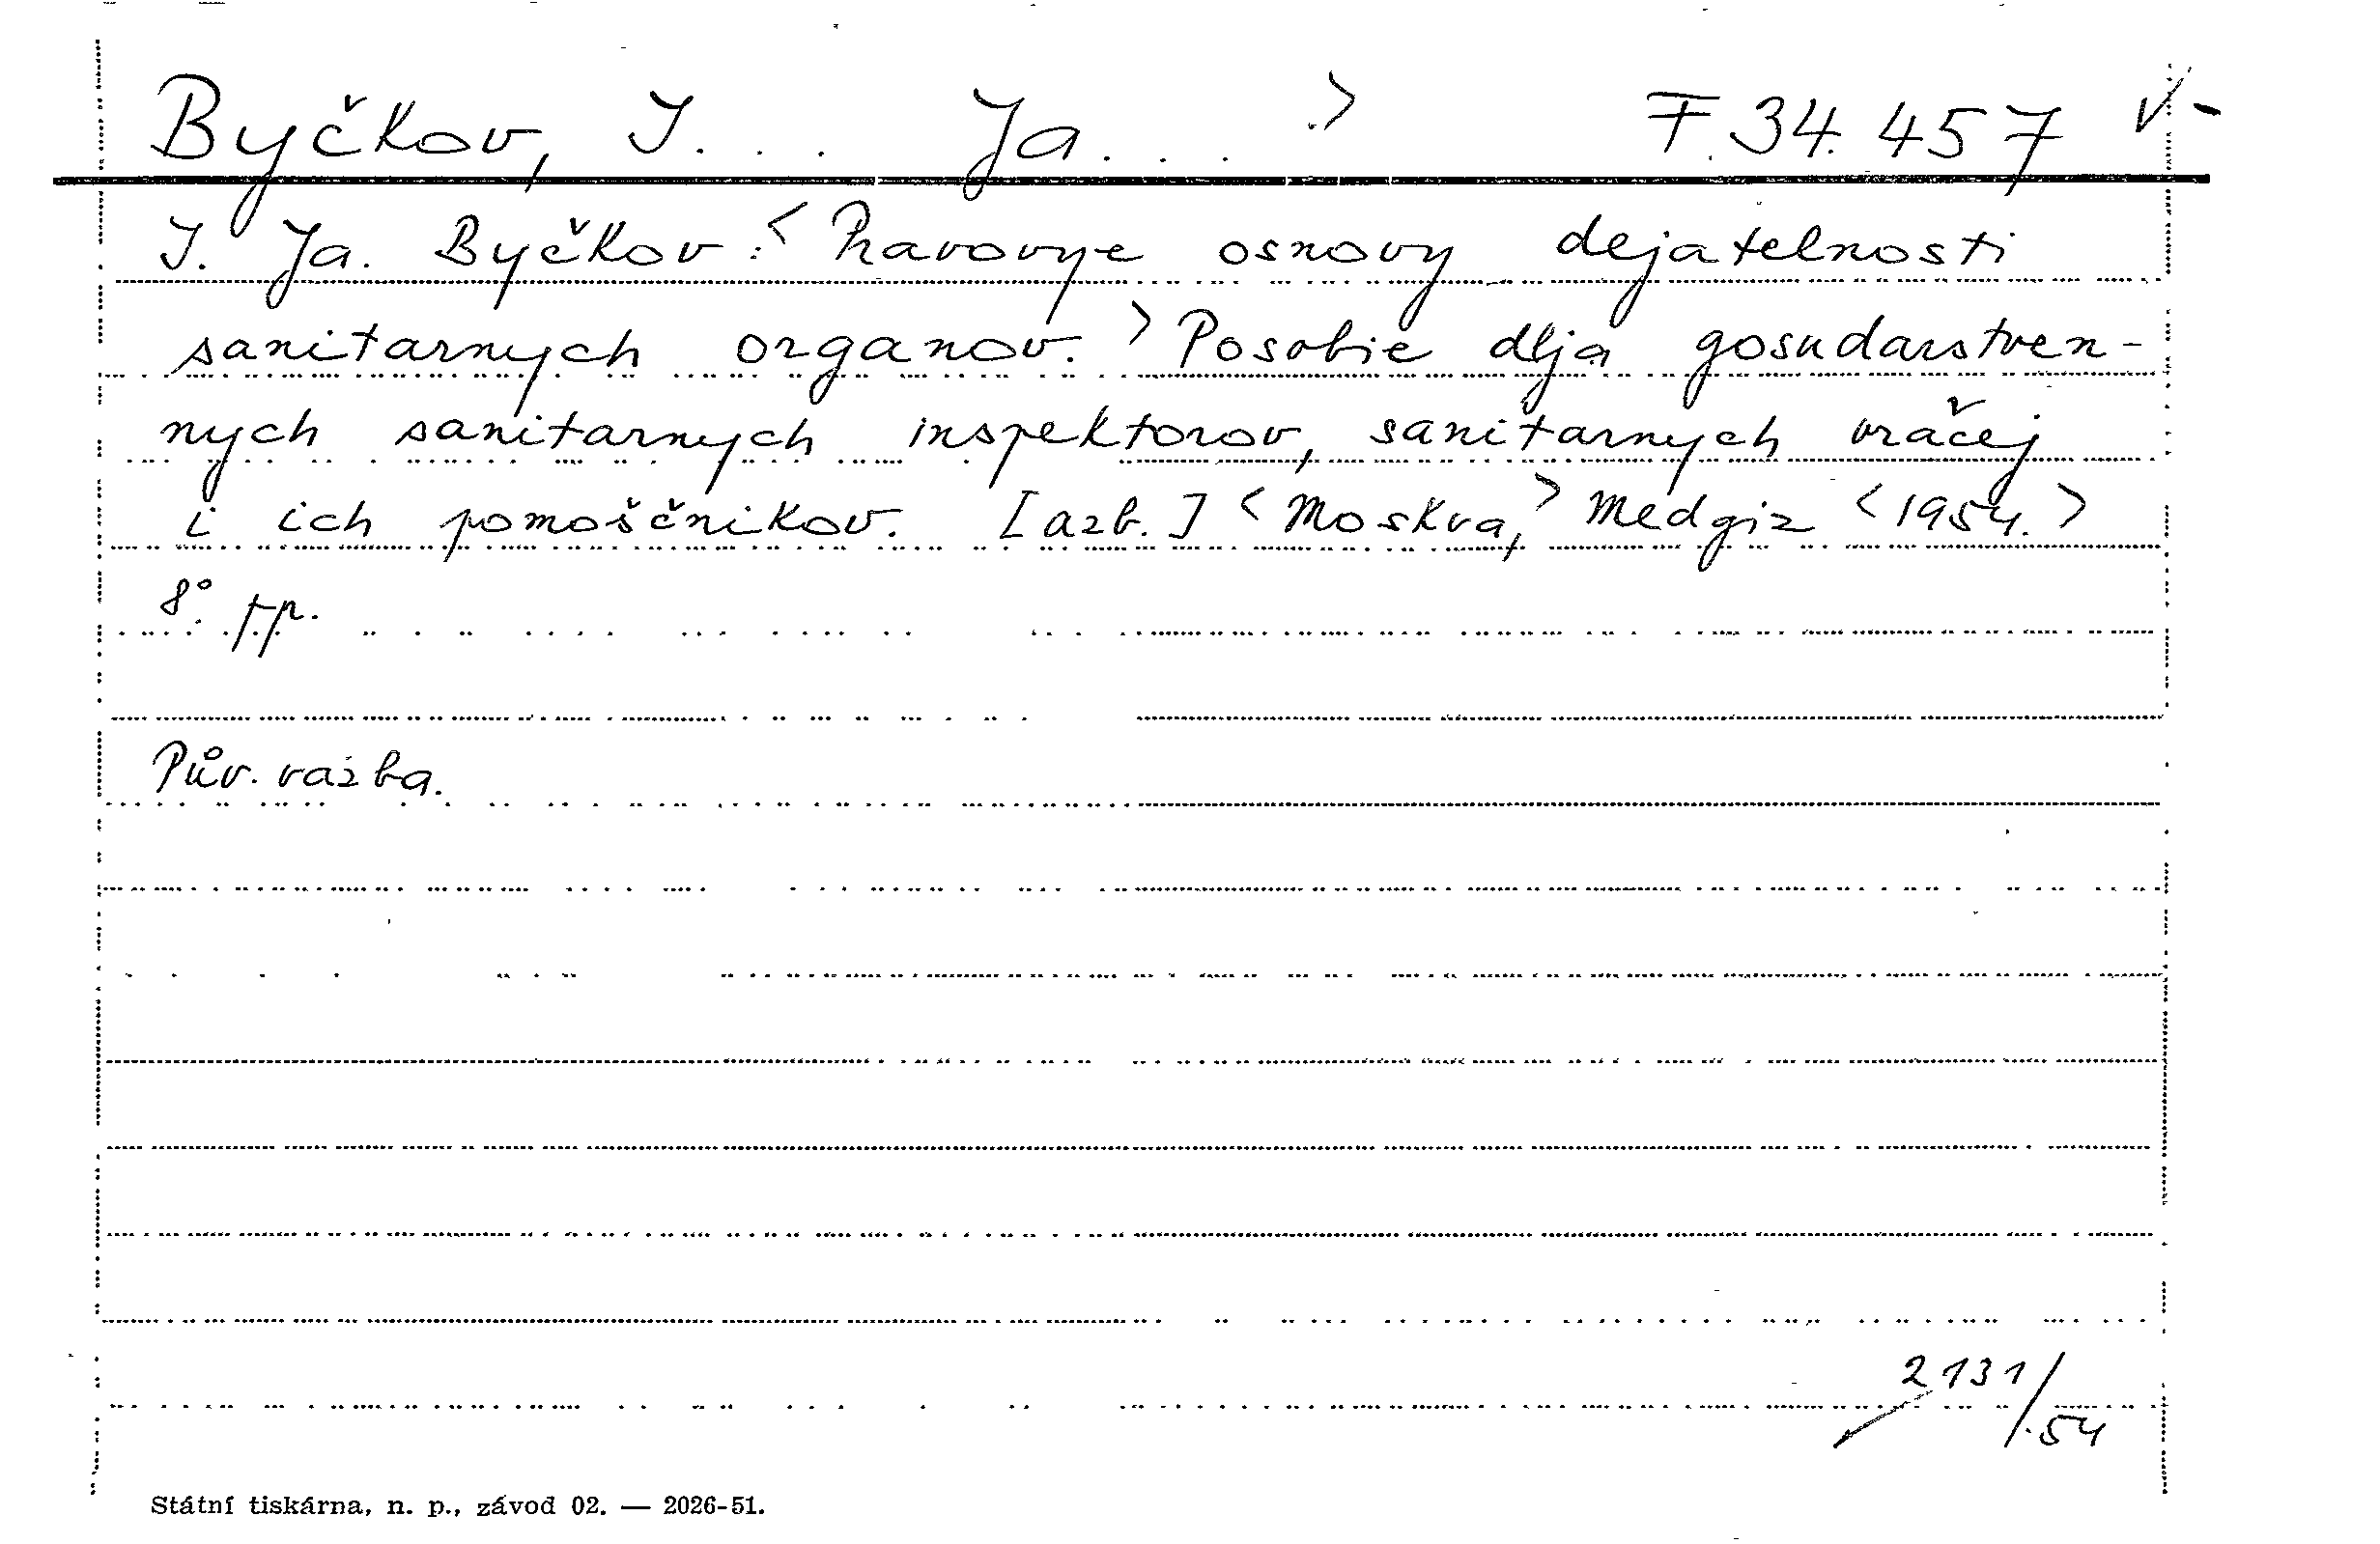 Byčkov, I... Ja... > F.34.457 V-
I. Ja. Byčkov: < Pravovye osnovy dejatelnosti
sanitarnych organov. > Posobie dlja gosudarstven-
nych sanitarnych inspektorov, sanitarnych vračej
i ich pomoščnikov. [azb.] < Moskva, > Medgiz < 1954. >
8°.
Pův. vazba.
2131/54
Státní tiskárna, n. p., závod 02. — 2026-51.